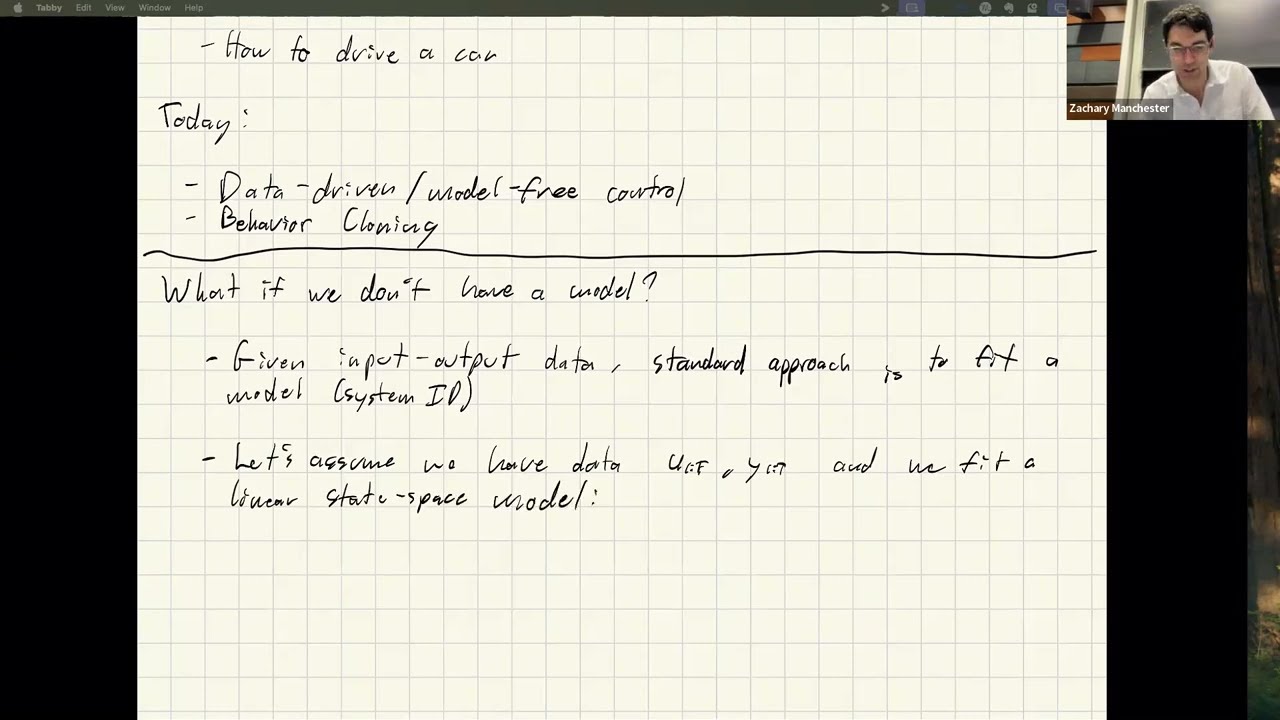 Tabby Edit View Window Help
Zachary Manchester
- How to drive a car
Today:
- Data-driven / model-free control
- Behavior Cloning
What if we don't have a model?
- Given input-output data, standard approach is to fit a
model (system ID)
- Let's assume we have data u₁:T, y₁:T and we fit a
linear state-space model: